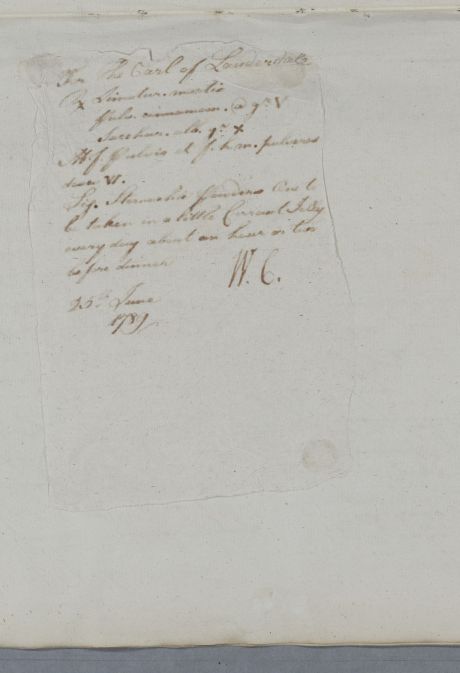 For The Earl of Lauderdale
℞ Limatur. martis
Pulv. cinnamom. @ gr. V
Sacchar. alb. gr. X
M. f. Pulvis et f. h. m. pulveres
tales VI.
Sig. Stomachic Powders One to
be taken in a little Currant Jelly
every day about an hour or two
before dinner
W. C.
25th June
1789